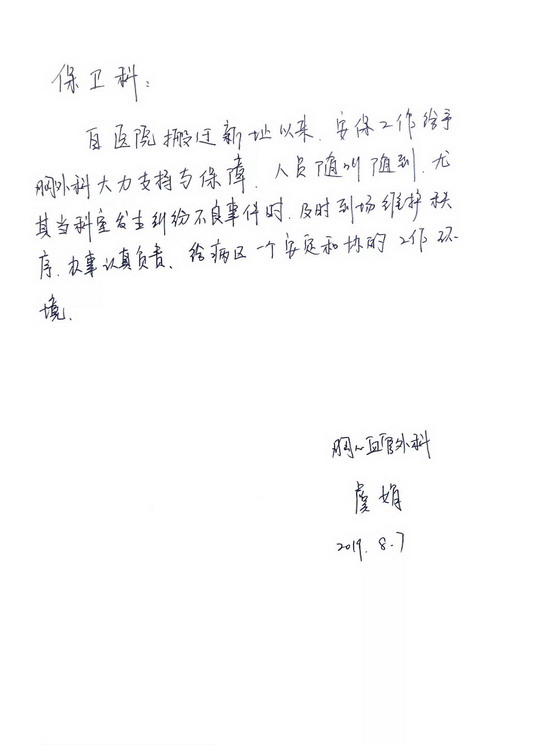 保卫科：
自医院搬迁新址以来，安保工作给予
胸外科大力支持与保障，人员随叫随到，尤
其当科室发生纠纷不良事件时，及时到场维护秩
序，办事认真负责、给病区一个安定和协的工作环
境。
胸心血管外科
虞娟
2019.8.7